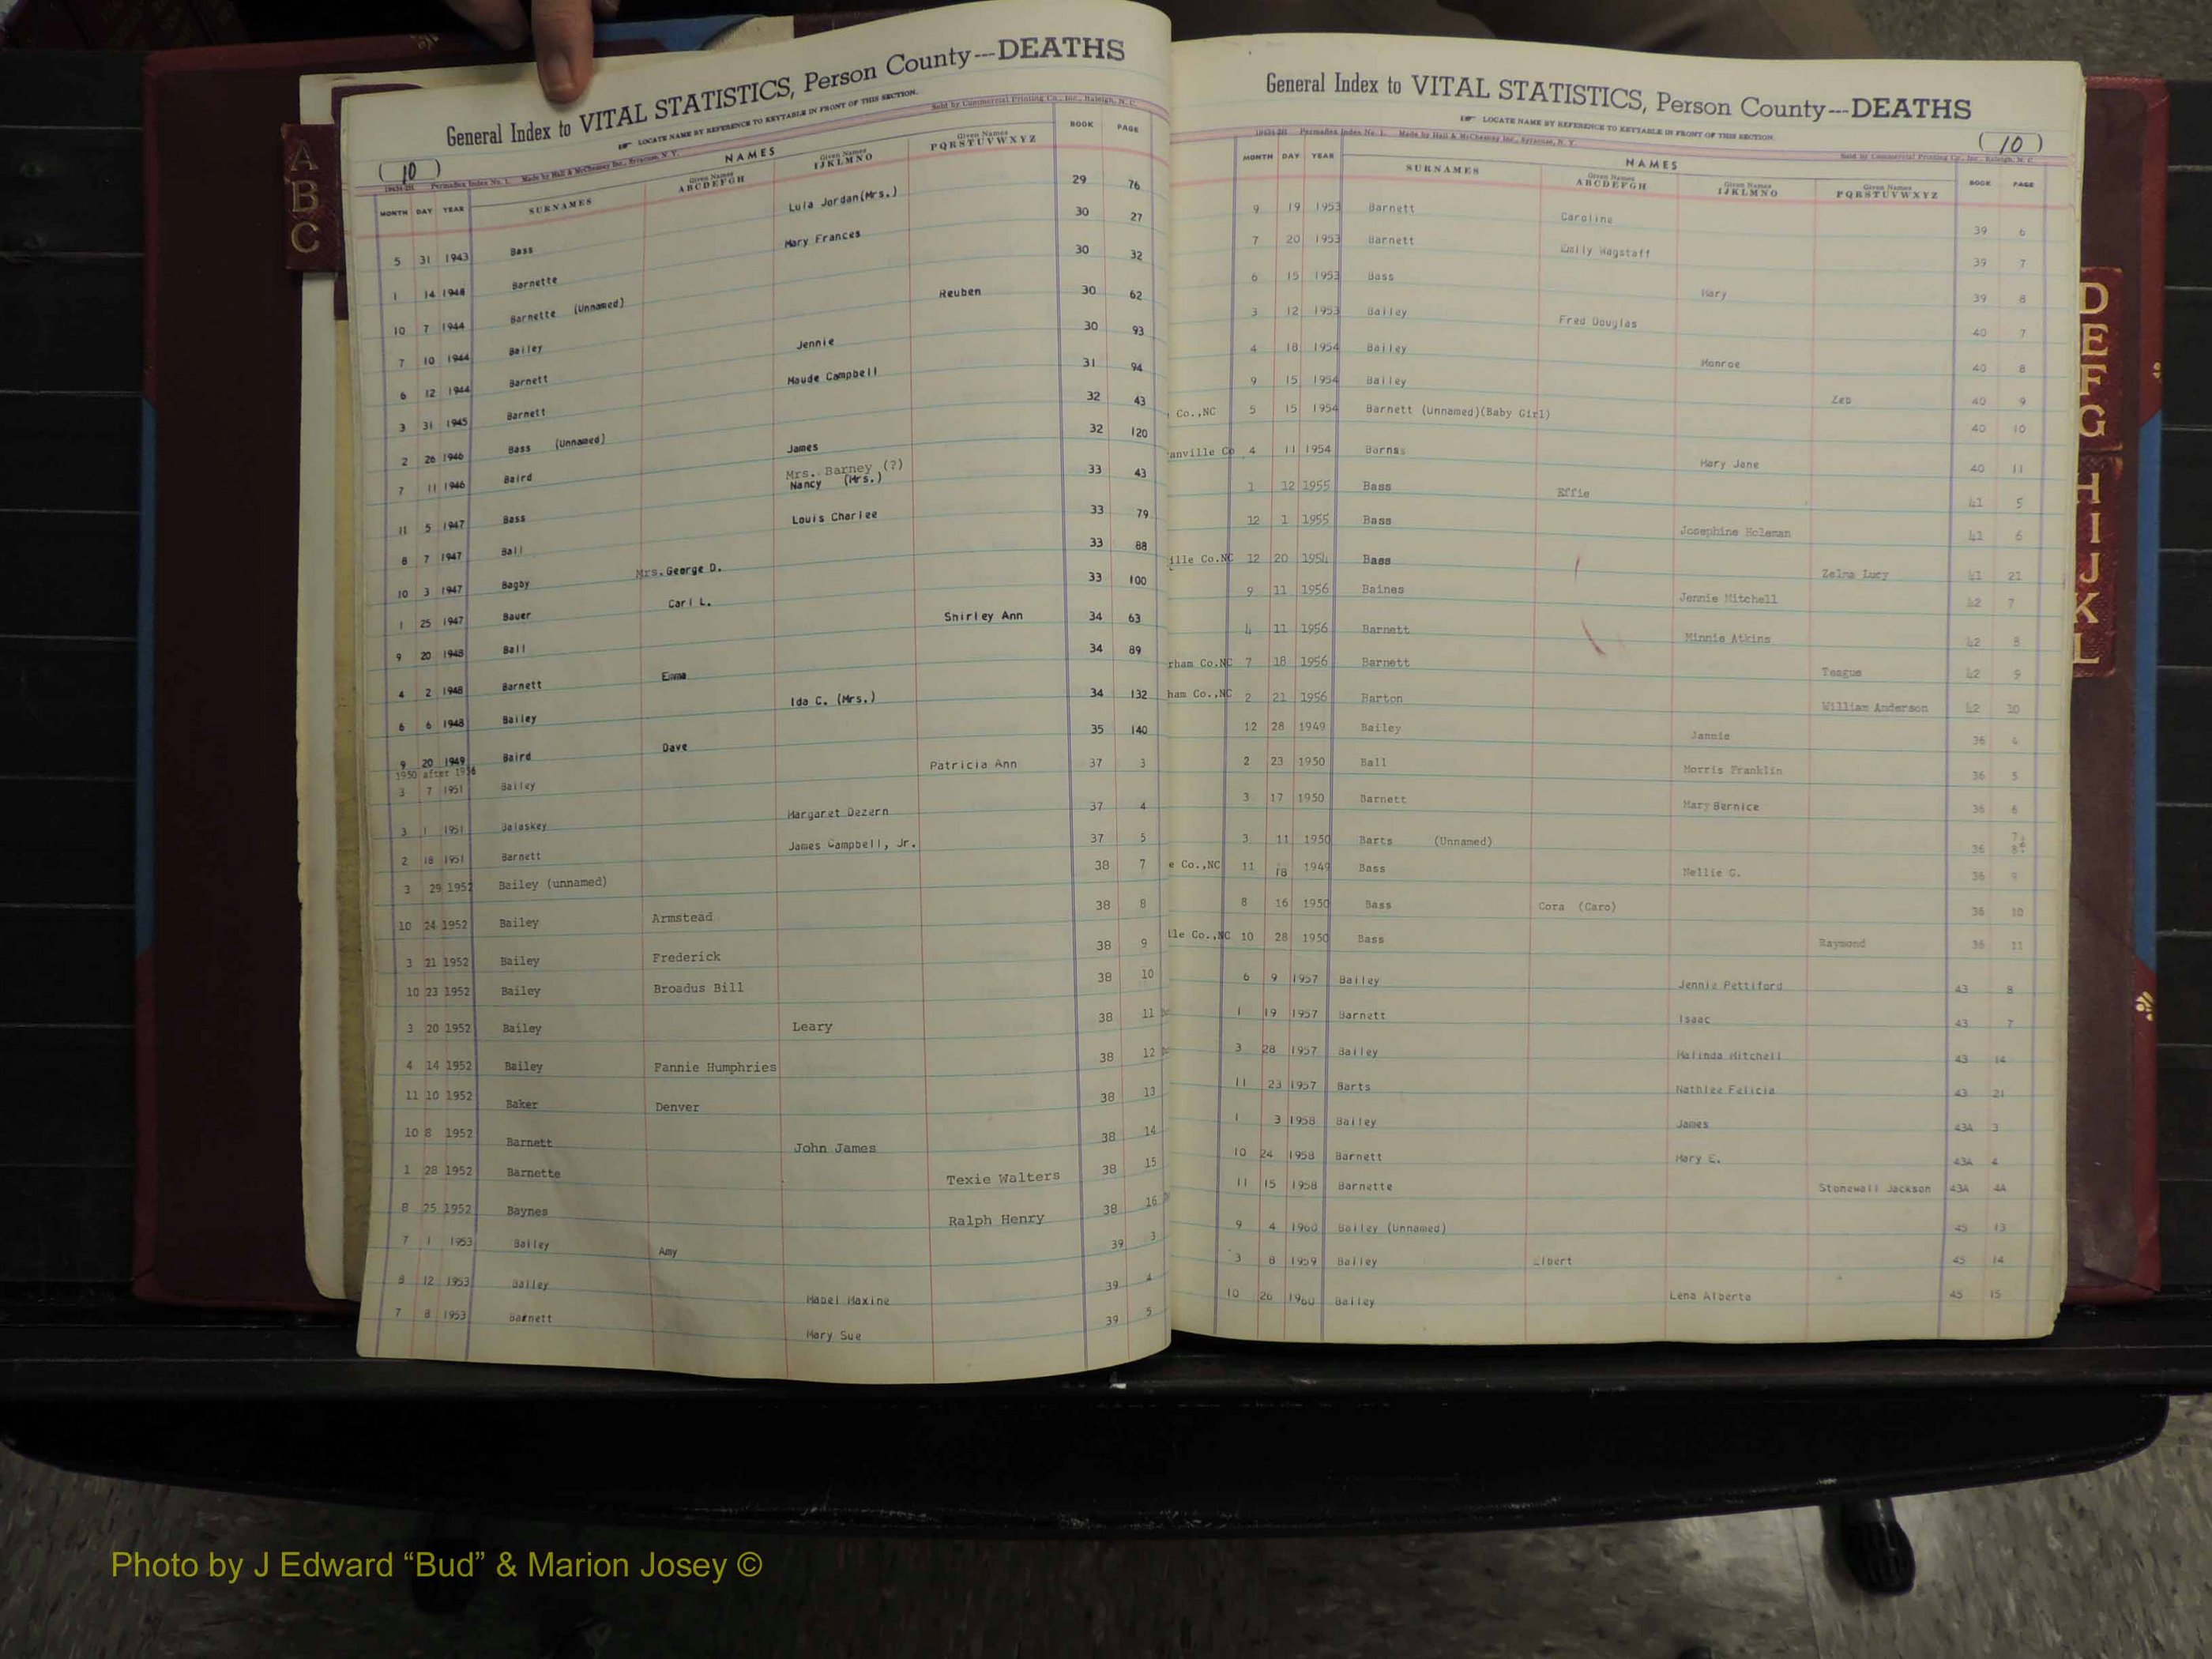 A
B
C
General Index to VITAL STATISTICS, Person County---DEATHS
LOCATE NAME BY REFERENCE TO KEYTABLE IN FRONT OF THIS SECTION.
Sold by Commercial Printing Co., Inc., Raleigh, N. C.
( 10 )
Permadex Index No. 1. Made by Hall & McChesney Inc., Syracuse, N. Y.
NAMES
MONTH DAY YEAR SURNAMES Given Names ABCDEFGH Given Names IJKLMNO Given Names PQRSTUVWXYZ BOOK PAGE
5 31 1943 Bass Lula Jordan(Mrs.) 29 76
1 14 1944 Barnette Mary Frances 30 27
10 7 1944 Barnette (Unnamed) 30 32
7 10 1944 Bailey Reuben 30 62
6 12 1944 Barnett Jennie 30 93
3 31 1945 Barnett Maude Campbell 31 94
2 26 1946 Bass (Unnamed) 32 43
7 11 1946 Baird James 32 120
11 5 1947 Bass Mrs. Barney (?) Nancy (Mrs.) 33 43
8 7 1947 Ball Louis Charlee 33 79
10 3 1947 Bagby Mrs. George D. 33 88
1 25 1947 Bauer Carl L. 33 100
9 20 1948 Ball Shirley Ann 34 63
4 2 1948 Barnett Emma 34 89
6 6 1948 Bailey Ida C. (Mrs.) 34 132
9 20 1949 Baird Dave 35 140
1950 after 1956
3 7 1951 Bailey Patricia Ann 37 3
3 1 1951 Balaskey Margaret Dezern 37 4
2 18 1951 Barnett James Campbell, Jr. 37 5
3 29 1952 Bailey (unnamed) 38 7
10 24 1952 Bailey Armstead 38 8
3 21 1952 Bailey Frederick 38 9
10 23 1952 Bailey Broadus Bill 38 10
3 20 1952 Bailey Leary 38 11
4 14 1952 Bailey Fannie Humphries 38 12
11 10 1952 Baker Denver 38 13
10 8 1952 Barnett John James 38 14
1 28 1952 Barnette Texie Walters 38 15
8 25 1952 Baynes Ralph Henry 38 16
7 1 1953 Bailey Amy 39 3
8 12 1953 Bailey Mabel Maxine 39 4
7 8 1953 Barnett Mary Sue 39 5
General Index to VITAL STATISTICS, Person County---DEATHS
LOCATE NAME BY REFERENCE TO KEYTABLE IN FRONT OF THIS SECTION.
( 10 )
Permadex Index No. 1. Made by Hall & McChesney Inc., Syracuse, N. Y.
Sold by Commercial Printing Co., Inc., Raleigh, N. C.
NAMES
MONTH DAY YEAR SURNAMES Given Names ABCDEFGH Given Names IJKLMNO Given Names PQRSTUVWXYZ BOOK PAGE
9 19 1953 Barnett Caroline 39 6
7 20 1953 Barnett Emily Wagstaff 39 7
6 15 1953 Bass Mary 39 8
3 12 1953 Bailey Fred Douglas 40 7
4 18 1954 Bailey Monroe 40 8
9 15 1954 Bailey Zeb 40 9
Co.,NC 5 15 1954 Barnett (Unnamed)(Baby Girl) 40 10
anville Co 4 11 1954 Barnes Mary Jane 40 11
1 12 1955 Bass Effie 41 5
12 1 1955 Bass Josephine Holeman 41 6
ille Co.NC 12 20 1954 Bass Zelma Lucy 41 21
9 11 1956 Baines Jennie Mitchell 42 7
4 11 1956 Barnett Minnie Atkins 42 8
rham Co.NC 7 18 1956 Barnett Teague 42 9
ham Co.,NC 2 21 1956 Barton William Anderson 42 10
12 28 1949 Bailey Jannie 36 4
2 23 1950 Ball Morris Franklin 36 5
3 17 1950 Barnett Mary Bernice 36 6
3 11 1950 Barts (Unnamed) 36 7 & 8
e Co.,NC 11 18 1949 Bass Nellie G. 36 9
8 16 1950 Bass Cora (Caro) 36 10
lle Co.,NC 10 28 1950 Bass Raymond 36 11
6 9 1957 Bailey Jennie Pettiford 43 8
1 19 1957 Barnett Isaac 43 7
3 28 1957 Bailey Malinda Mitchell 43 14
11 23 1957 Barts Nathlee Felicia 43 21
1 3 1958 Bailey James 43A 3
10 24 1958 Barnett Mary E. 43A 4
11 15 1958 Barnette Stonewall Jackson 43A 4A
9 4 1960 Bailey (Unnamed) 45 13
3 8 1959 Bailey Elbert 45 14
10 26 1960 Bailey Lena Alberta 45 15
D
E
F
G
H
I
J
K
L
Photo by J Edward “Bud” & Marion Josey ©